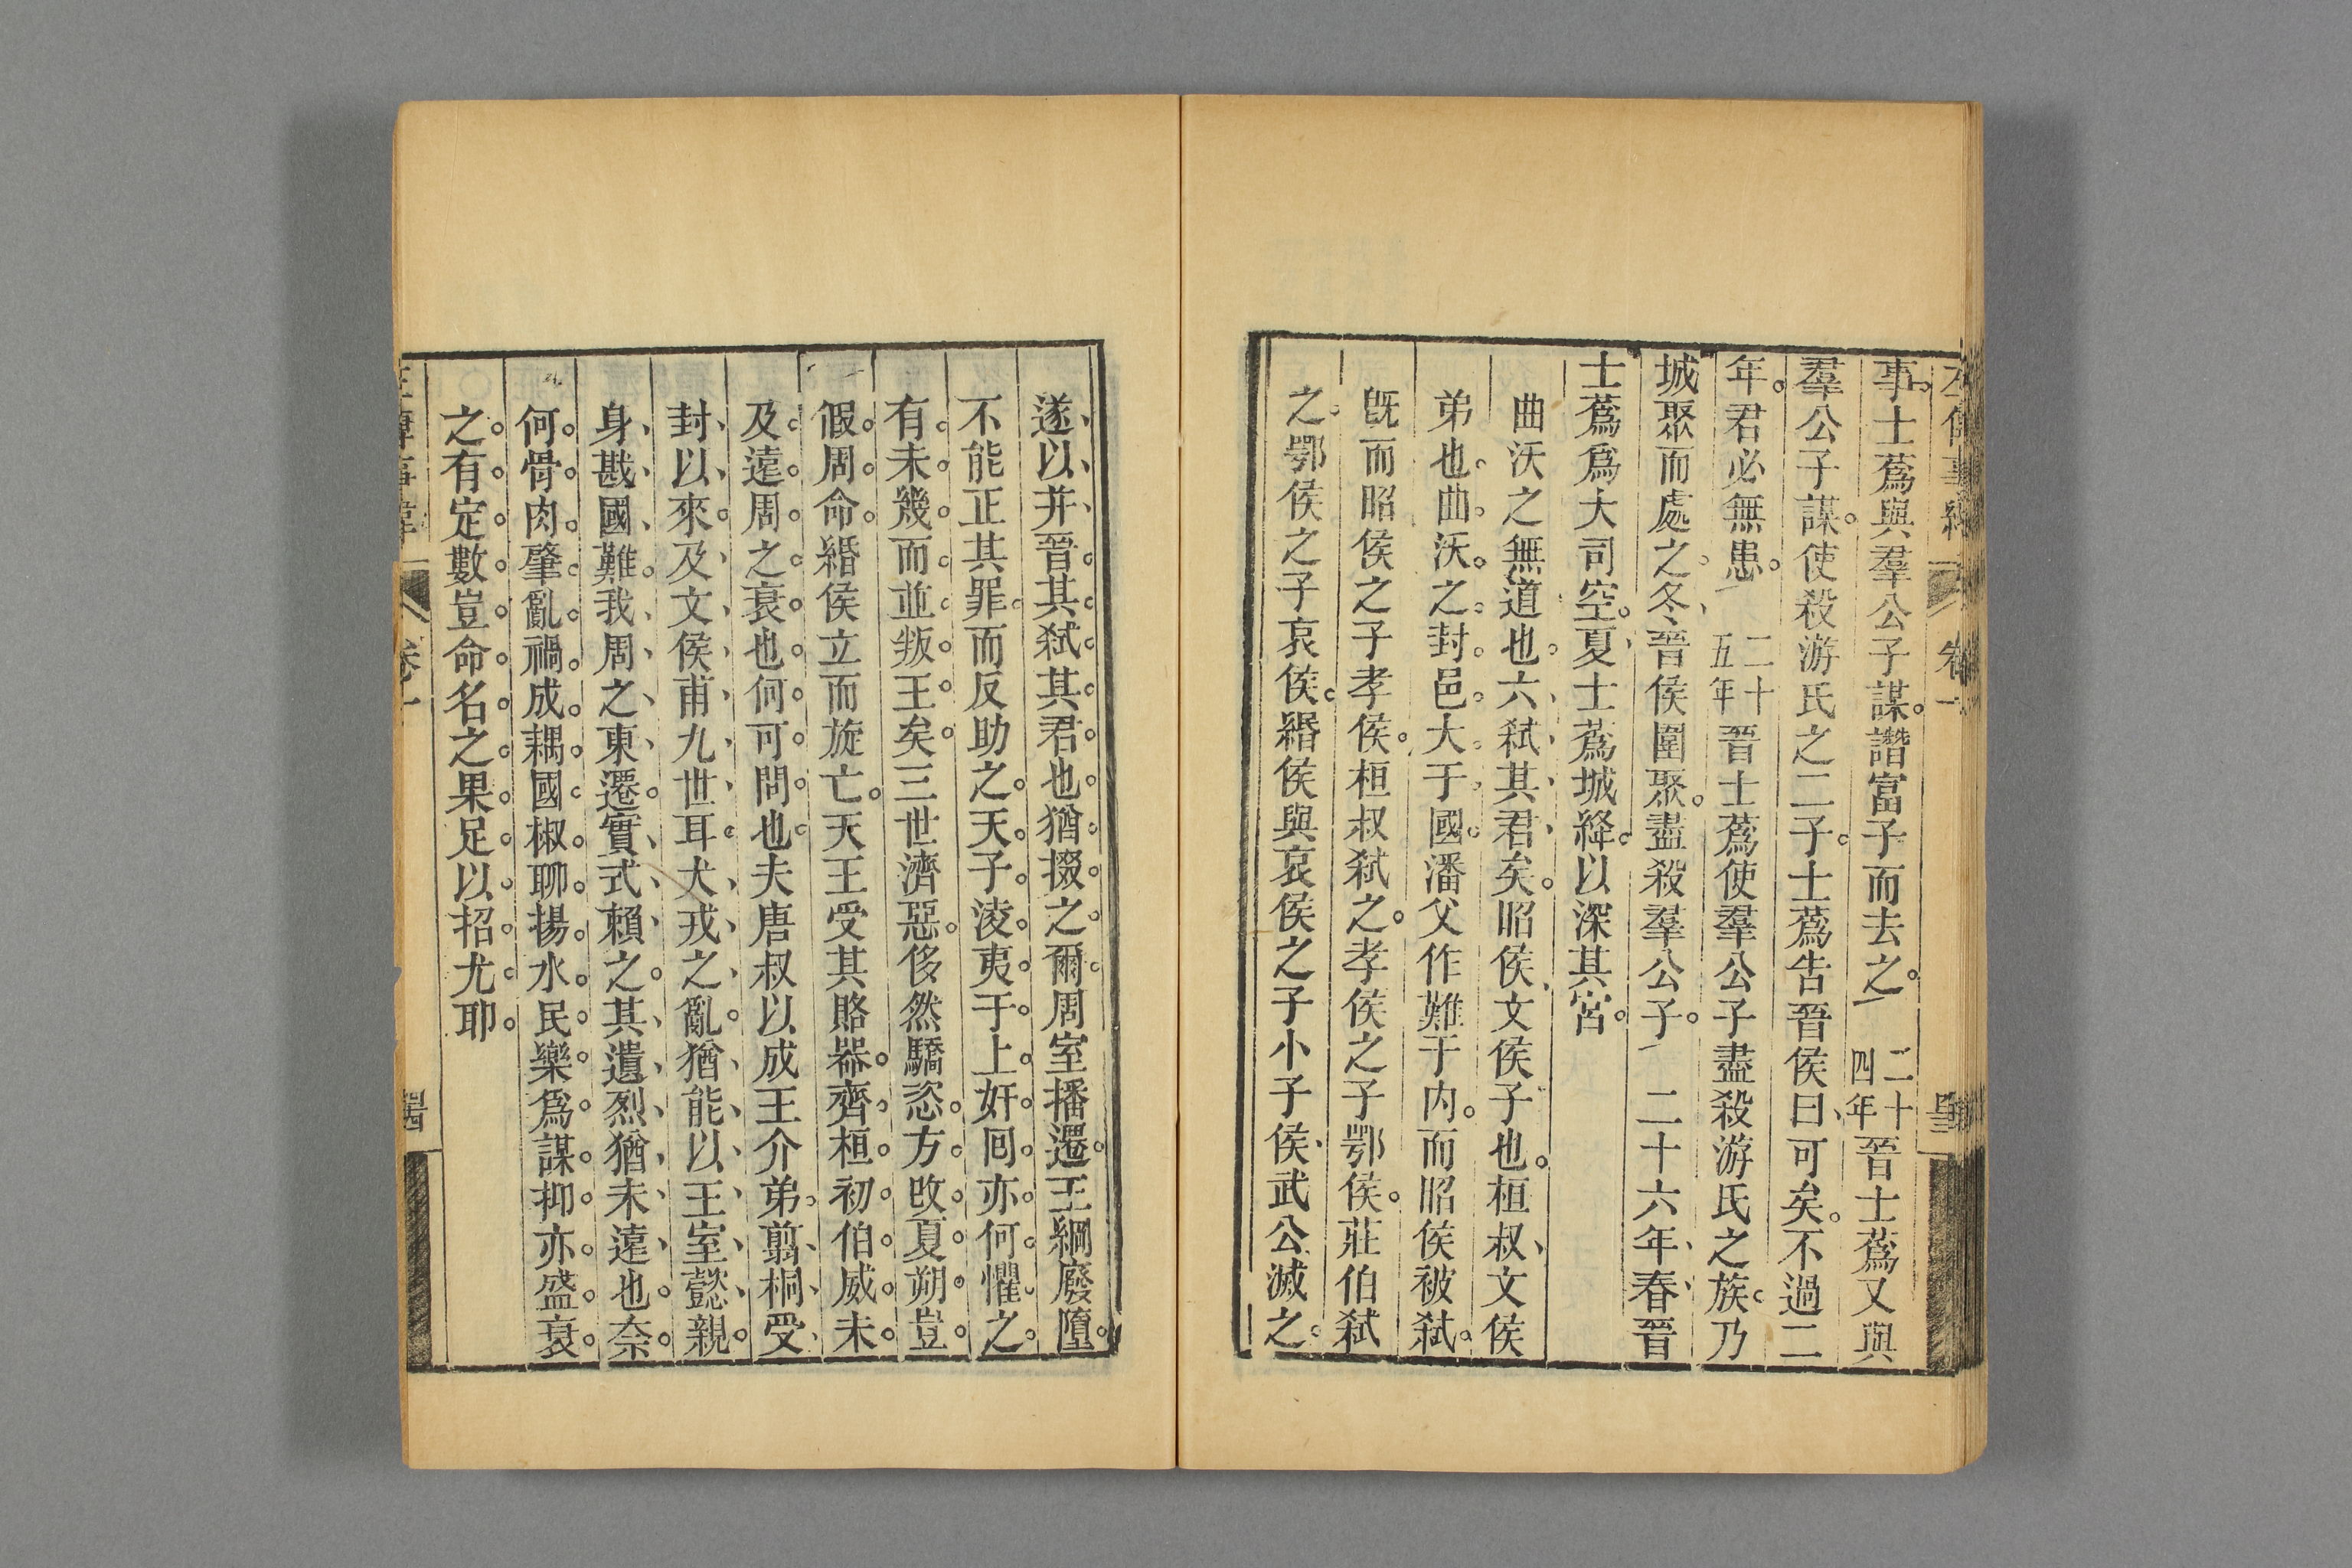 事士蔿與羣公子謀譖富子而去之二十四年晉士蔿又與
羣公子謀使殺游氏之二子士蔿告晉侯曰可矣不過二
年君必無患二十五年晉士蔿使羣公子盡殺游氏之族乃
城聚而處之冬晉侯圍聚盡殺羣公子二十六年春晉
士蔿爲大司空夏士蔿城絳以深其宮
曲沃之無道也六弑其君矣昭侯文侯子也桓叔文侯
弟也曲沃之封邑大于國潘父作難于内而昭侯被弑
旣而昭侯之子孝侯桓叔弑之孝侯之子鄂侯莊伯弑
之鄂侯之子哀侯緡侯與哀侯之子小子侯武公滅之
遂以并晉其弑其君也猶掇之爾周室播遷王綱廢墮
不能正其罪而反助之天子淩夷于上奸囘亦何懼之
有未幾而並叛王矣三世濟惡侈然驕恣方改夏朔豈
假周命緡侯立而旋亡天王受其賂器齊桓初伯威未
及遠周之衰也何可問也夫唐叔以成王介弟翦桐受
封以來及文侯甫九世耳犬戎之亂猶能以王室懿親
身戡國難我周之東遷實式賴之其遺烈猶未遠也奈
何骨肉肇亂禍成耦國椒聊揚水民樂爲謀抑亦盛衰
之有定數豈命名之果足以招尤耶
左傳事緯 卷一